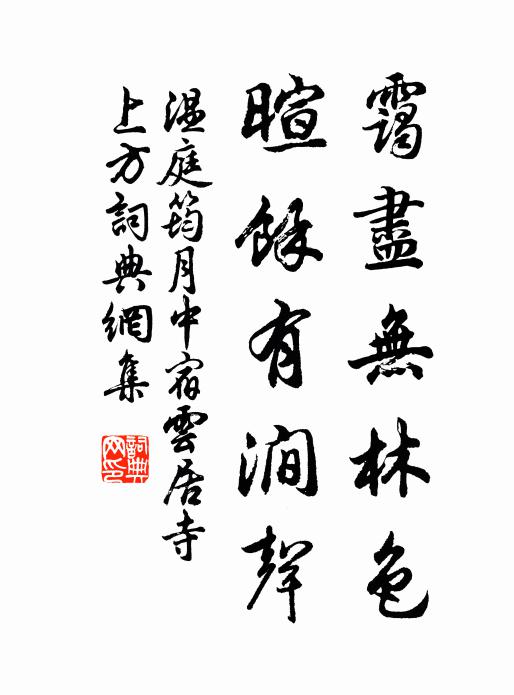 靄盡無林色
暄餘有澗聲
溫庭筠月中宿雲居寺
上方詞典網集
詞典
网印